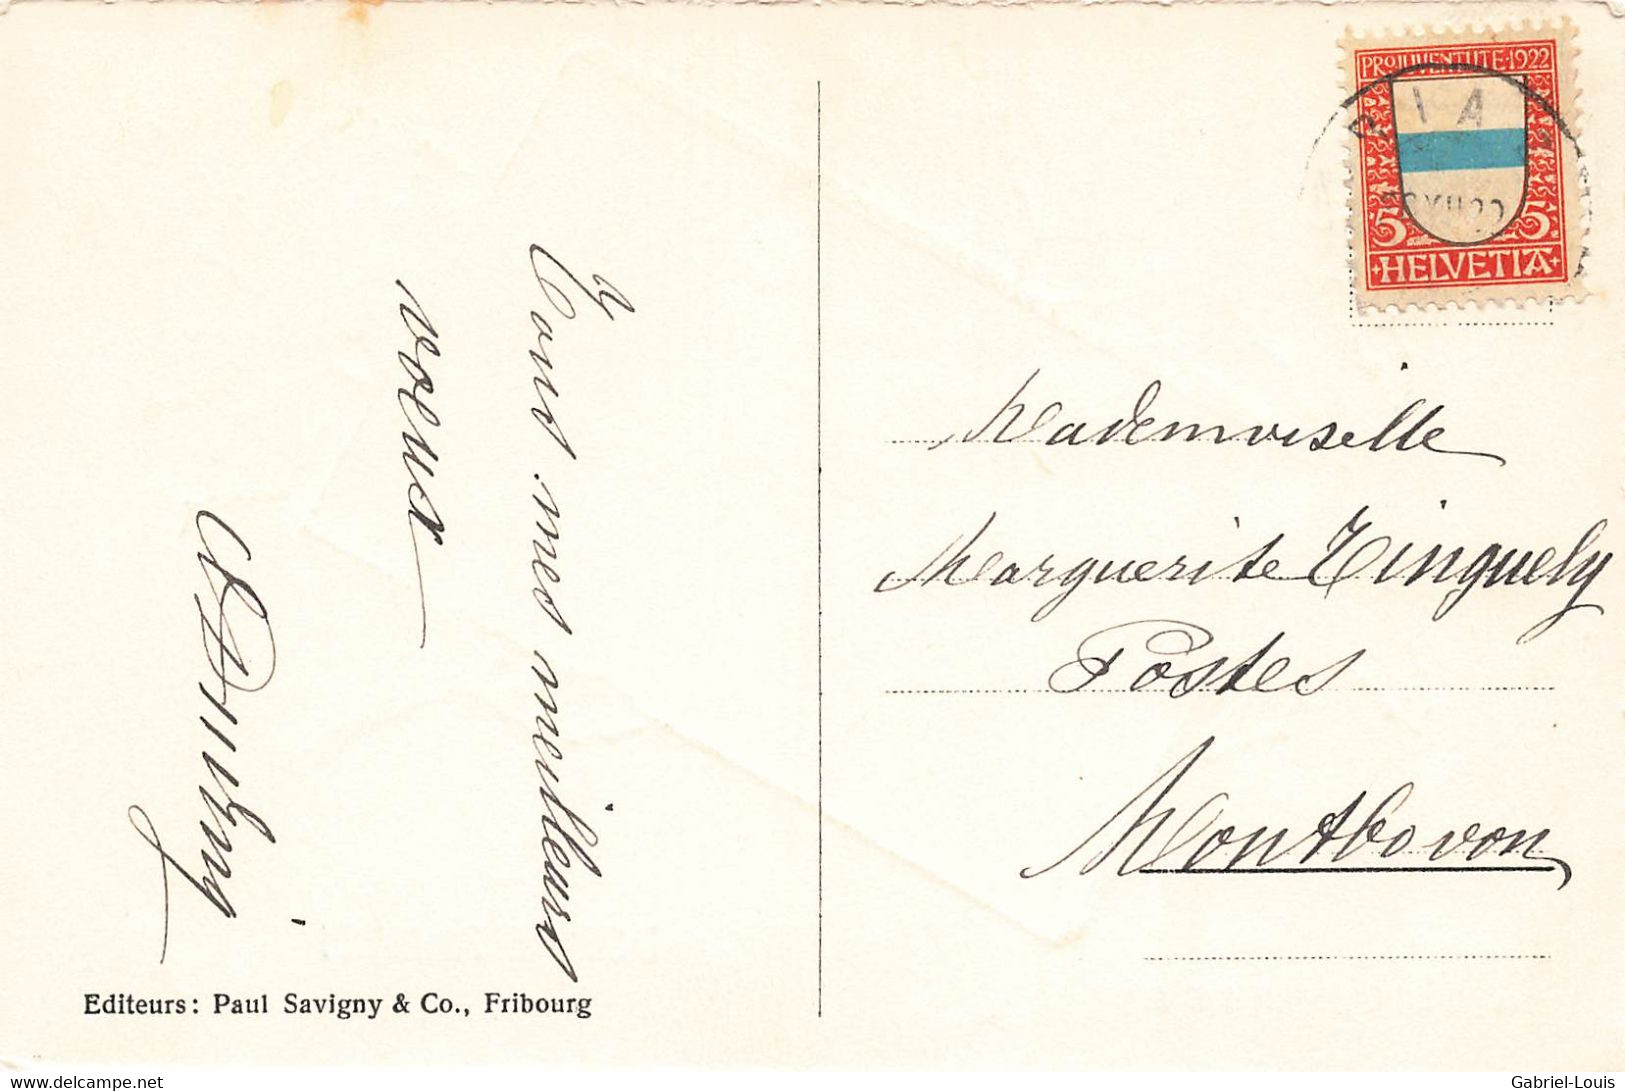 Tous mes meilleurs
voeux
Editeurs: Paul Savigny & Co., Fribourg
PRO JUVENTUTE·1922
5 5
+HELVETIA+
Mademoiselle
Marguerite Tinguely
Postes
Montbovon
delcampe.net
Gabriel-Louis